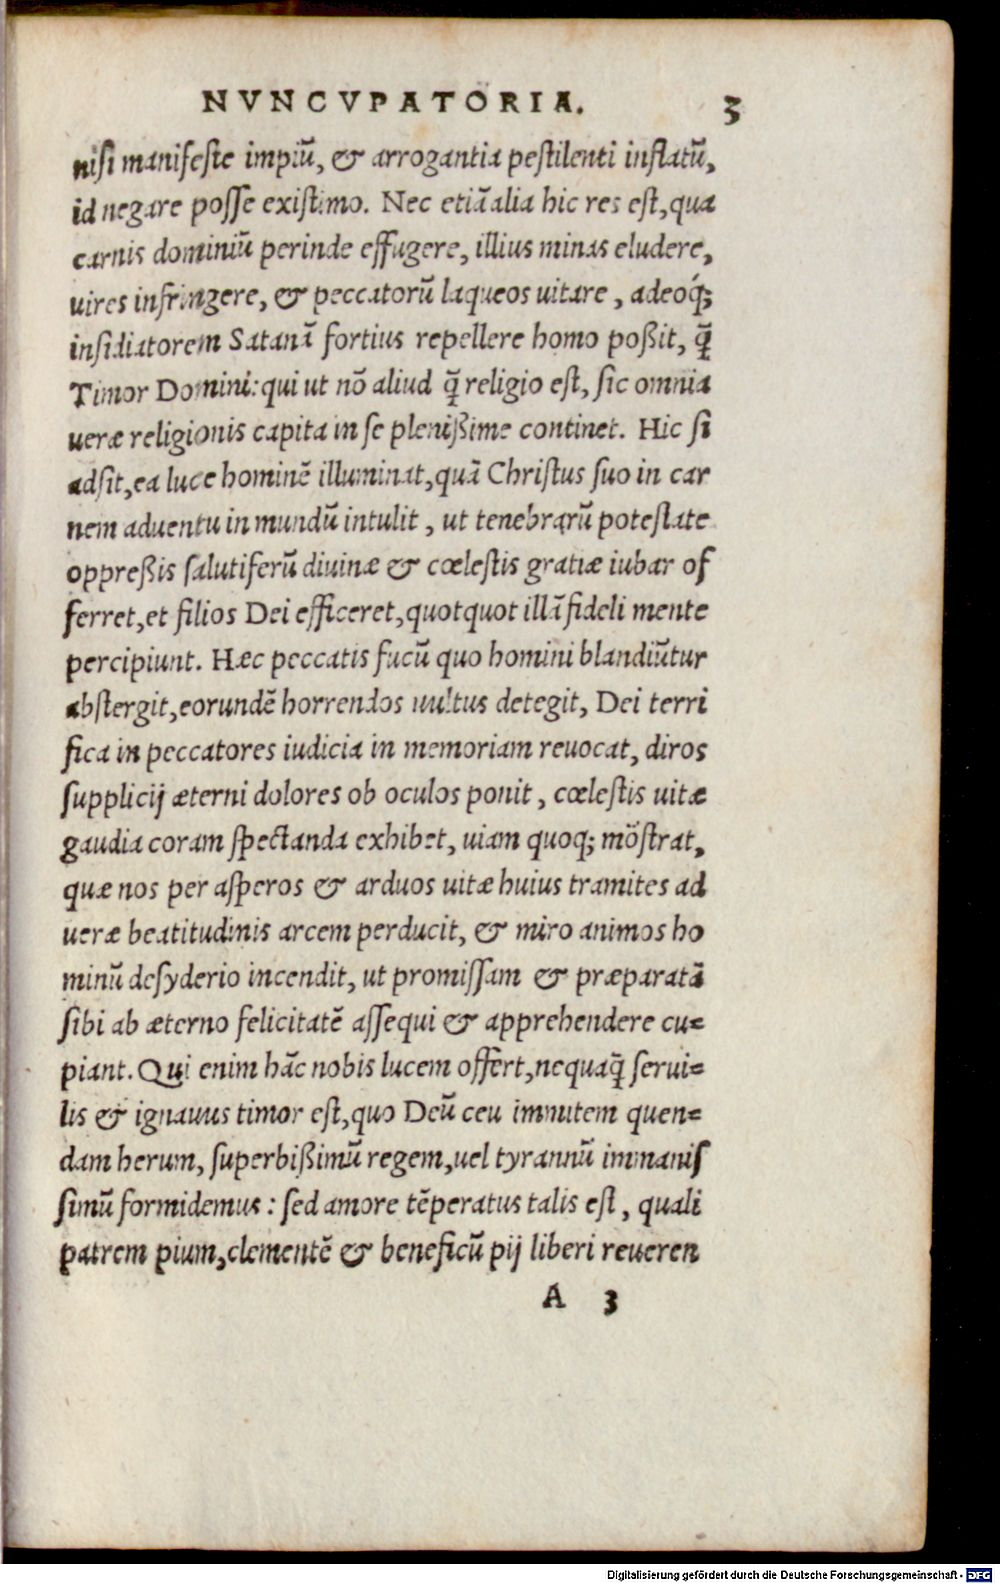 NVNCVPATORIA. 3
nisi manifeste impiũ, & arrogantia pestilenti inflatũ,
id negare posse existimo. Nec etiã alia hic res est, qua
carnis dominiũ perinde effugere, illius minas eludere,
uires infringere, & peccatorũ laqueos uitare, adeoq́;
insidiatorem Satanã fortius repellere homo poßit, q̃
Timor Domini: qui ut nõ aliud q̃ religio est, sic omnia
ueræ religionis capita in se plenißime continet. Hic si
adsit, ea luce hominẽ illuminat, quã Christus suo in car
nem aduentu in mundũ intulit, ut tenebrarũ potestate
oppreßis salutiferũ diuinæ & cœlestis gratiæ iubar of
ferret, et filios Dei efficeret, quotquot illã fideli mente
percipiunt. Hæc peccatis fucũ quo homini blandiũtur
abstergit, eorundẽ horrendos uultus detegit, Dei terri
fica in peccatores iudicia in memoriam reuocat, diros
supplicij æterni dolores ob oculos ponit, cœlestis uitæ
gaudia coram spectanda exhibet, uiam quoq; mõstrat,
quæ nos per asperos & arduos uitæ huius tramites ad
ueræ beatitudinis arcem perducit, & miro animos ho
minũ desyderio incendit, ut promissam & præparatã
sibi ab æterno felicitatẽ assequi & apprehendere cu=
piant. Qui enim hãc nobis lucem offert, nequaq̃ serui=
lis & ignauus timor est, quo Deũ ceu immitem quen=
dam herum, superbißimũ regem, uel tyrannũ immanis
simũ formidemus: sed amore tẽperatus talis est, quali
patrem pium, clementẽ & beneficũ pij liberi reueren
A 3
Digitalisierung gefördert durch die Deutsche Forschungsgemeinschaft - DFG